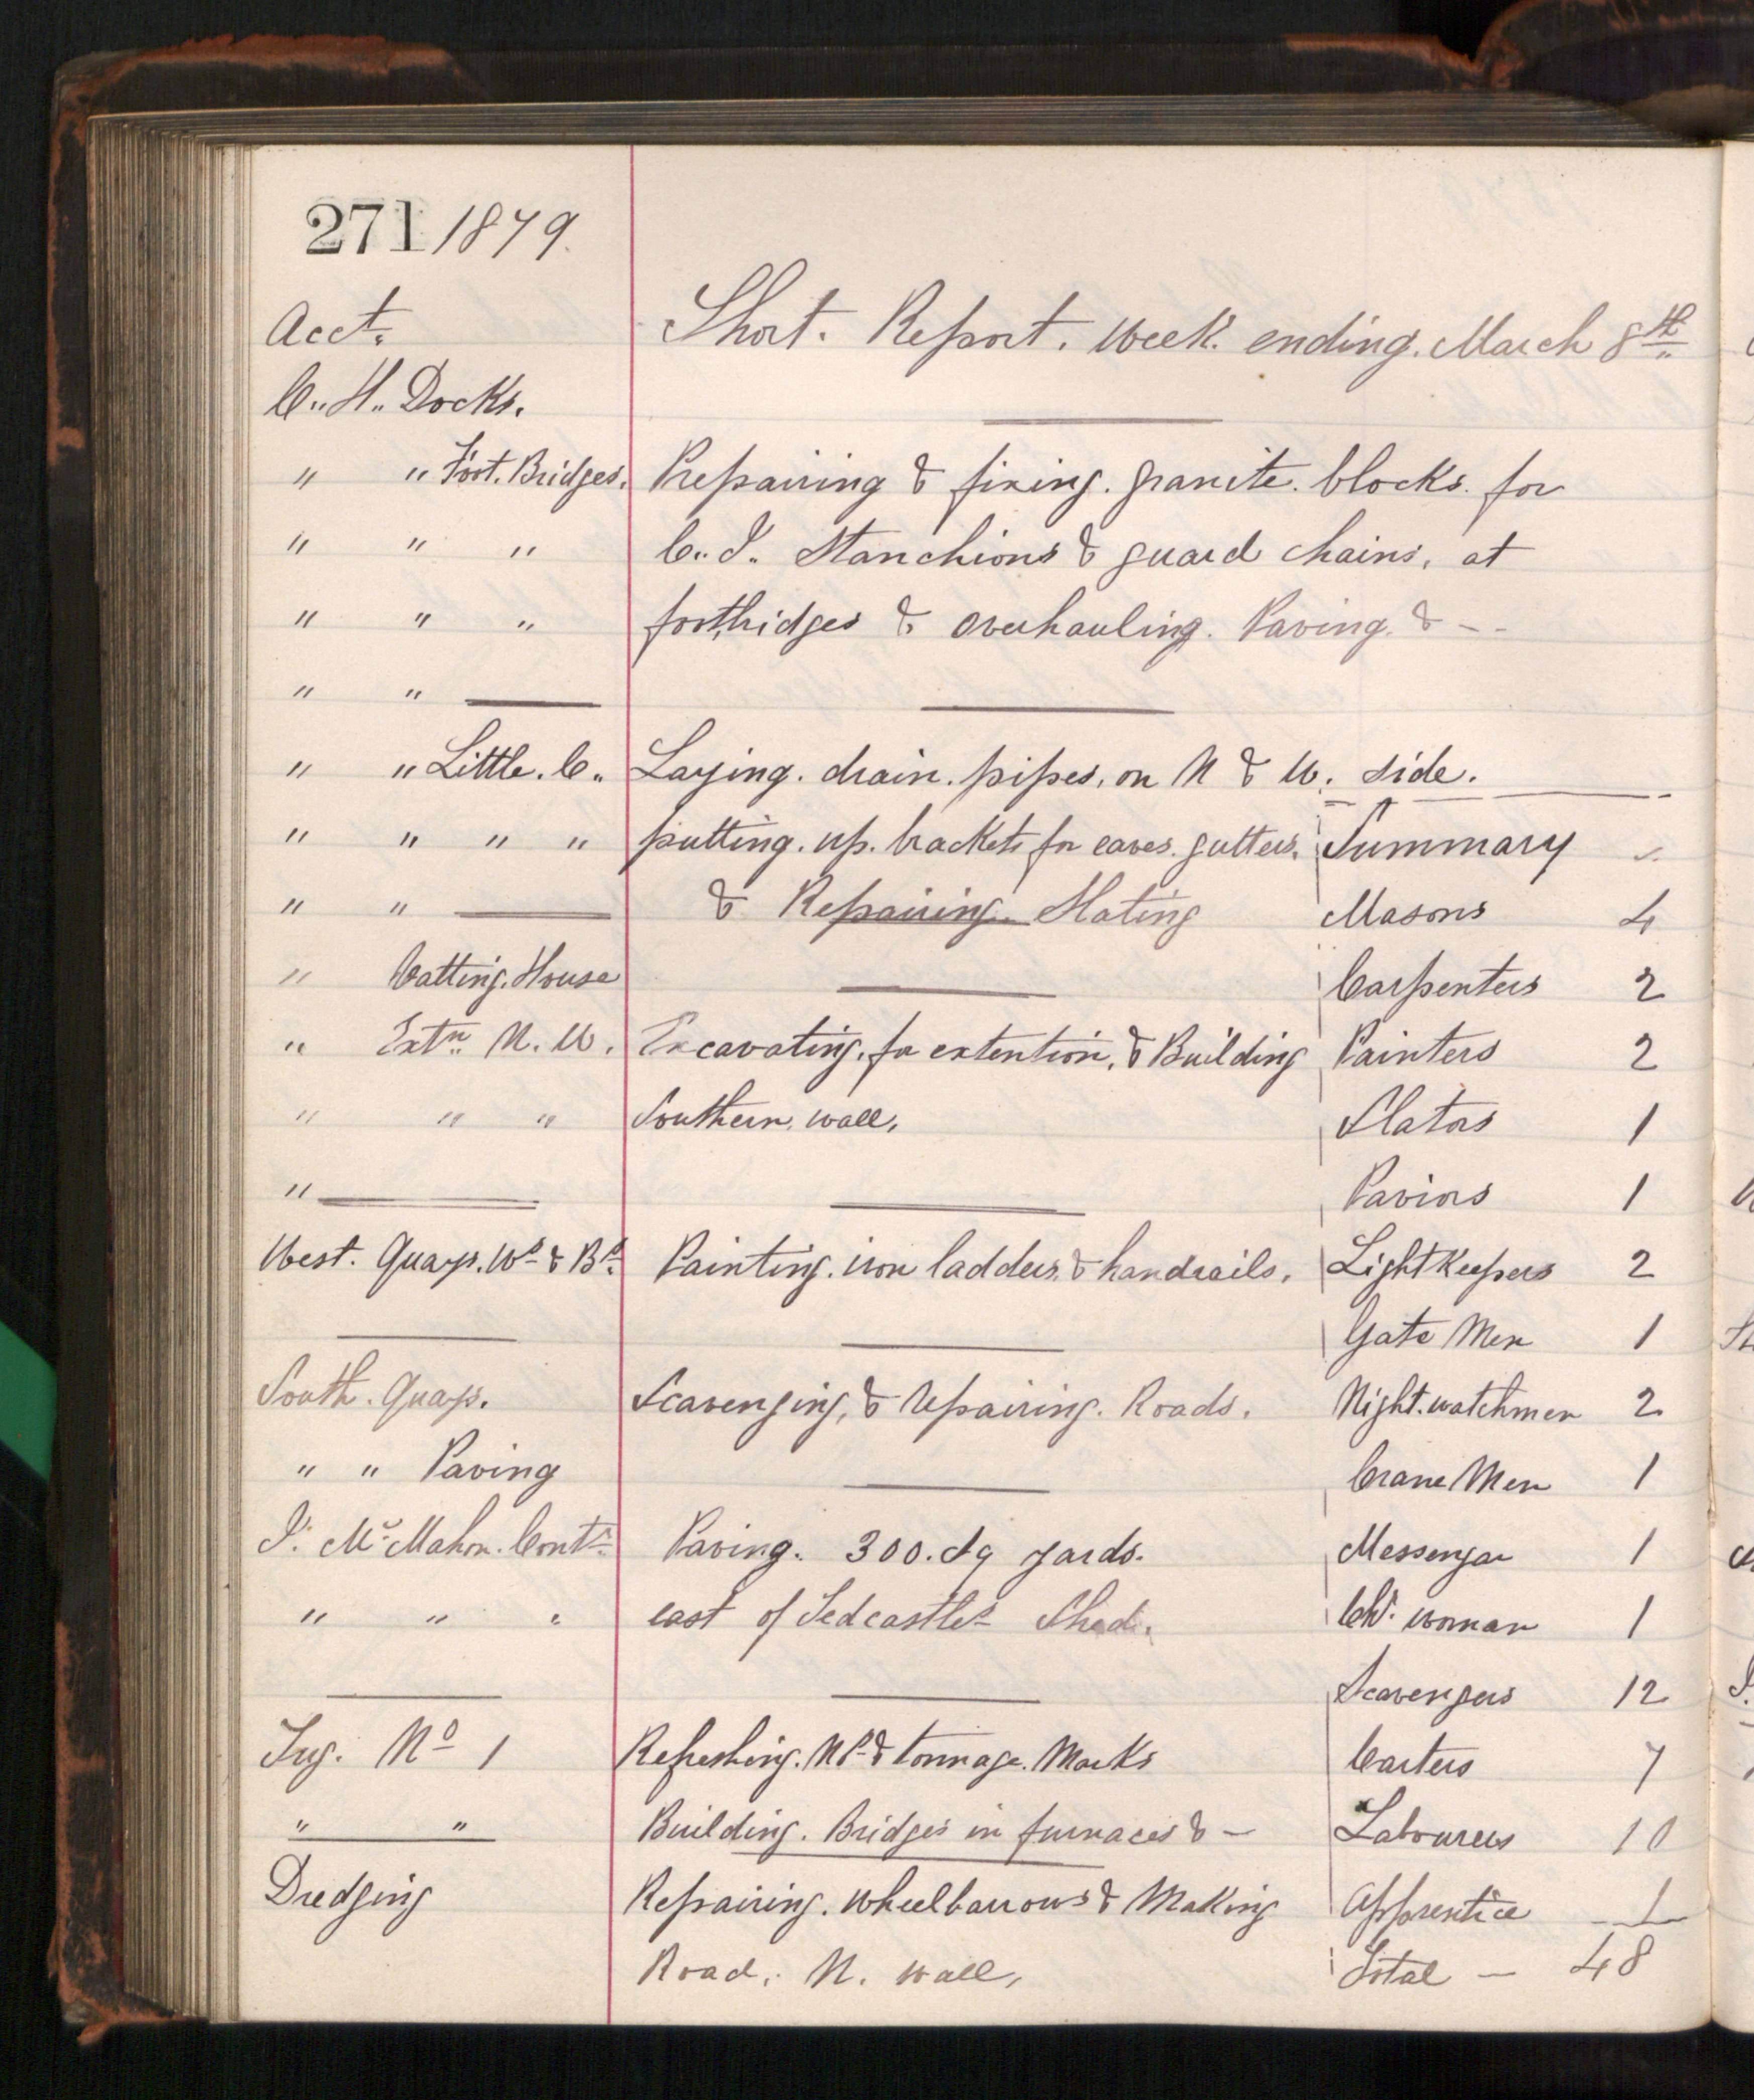 271 1879.
Acct. Short. Report. Week ending. March 8th
C.. H.. Docks.
" " Foot. Bridges. Preparing & fixing. granite. blocks. for
" " " C.. I.. Stanchions & guard chains, at
" " " footbridges & overhauling. Paving. & --
" "
" " Little. C.. Laying. drain. pipes, on N & W. side.
" " " " putting. up. brackets for eaves. gutters. Summary
" " & Repairing Slating Masons 4
" Watting. House Carpenters 2
" Extn. N. W. Excavating. for extention, & Building Painters 2
" " " Southern. wall, Slators 1
" Paviors 1
West. Quays. Ws & Bs. Painting. iron ladders & handrails. Light Keepers 2
Gate Men 1
South. Quays. Scavenging, & repairing. Roads. Night. watchmen 2
" " Paving Crane Men 1
J. McMahon. Contr. Paving. 300. sq yards. Messenger 1
" " " east of Tedcastles Shed. Ch. woman 1
Scavengers 12
Tug. No 1 Refreshing. Ns & tonnage. Marks Carters 7
" " Building. Bridges in furnaces & - Labourers 10
Dredging Repairing. wheelbarrows & Making Apprentice 1
Road, N. wall, Total - 48